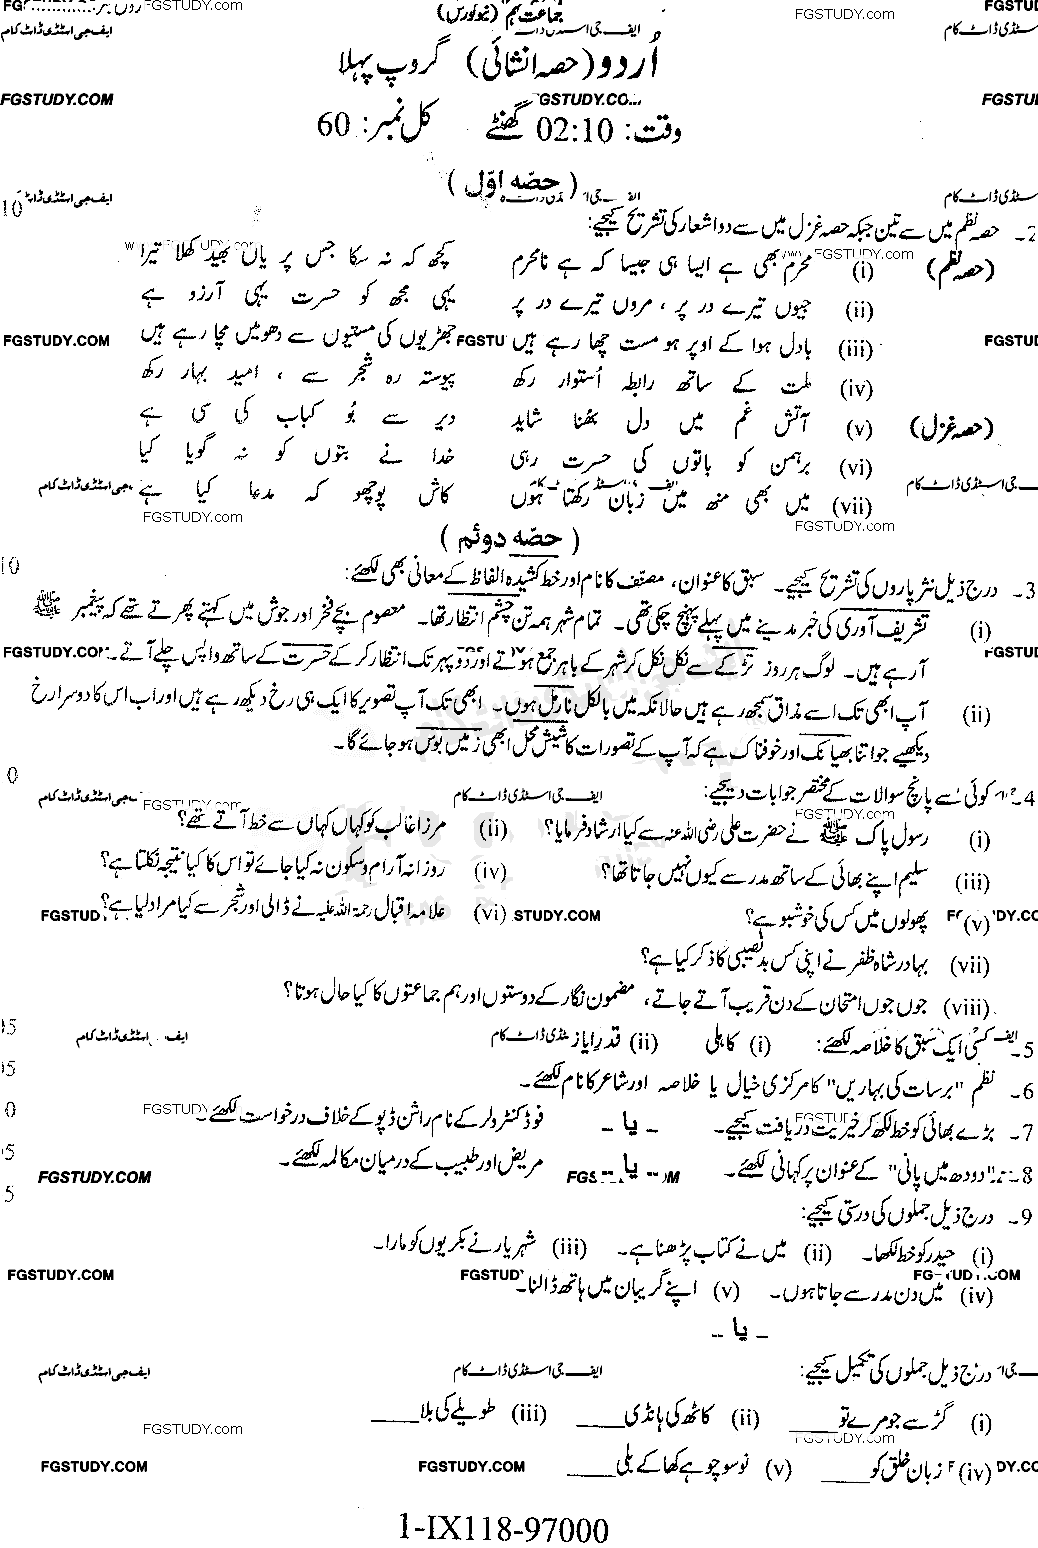 جماعت نہم (نیو کورس)
اُردو (حصہ انشائی) گروپ پہلا
وقت: 02:10 گھنٹے کل نمبر: 60
(حصّہ اوّل)
2۔ حصہ نظم میں سے تین جبکہ حصہ غزل میں سے دو اشعار کی تشریح کیجیے: 10
(حصہ نظم) (i) محرم بھی ہے ایسا ہی جیسا کہ ہے نا محرم کچھ کہ نہ سکا جس پر یاں بھید کھلا تیرا
(ii) جیوں تیرے در پر ، مروں تیرے در پر یہی مجھ کو حسرت یہی آرزو ہے
(iii) بادل ہوا کے اوپر ہو مست چھا رہے ہیں جھڑیوں کی مستیوں سے دھومیں مچا رہے ہیں
(iv) ملت کے ساتھ رابطہ اُستوار رکھ پیوستہ رہ شجر سے ، امید بہار رکھ
(حصہ غزل) (v) آتش غم میں دل بھنا شاید دیر سے بُو کباب کی سی ہے
(vi) برہمن کو باتوں کی حسرت رہی خدا نے بتوں کو نہ گویا کیا
(vii) میں بھی منھ میں زبان رکھتا ہوں کاش پوچھو کہ مدعا کیا ہے
(حصّہ دوئم)
3۔ درج ذیل نثر پاروں کی تشریح کیجیے۔ سبق کا عنوان، مصنف کا نام اور خط کشیدہ الفاظ کے معانی بھی لکھئے: 10
(i) تشریف آوری کی خبر مدینے میں پہلے پہنچ چکی تھی۔ تمام شہر ہمہ تن چشم انتظار تھا۔ معصوم بچے فخر اور جوش میں کہتے پھرتے تھے کہ پیغمبر ﷺ
آ رہے ہیں۔ لوگ ہر روز تڑکے سے نکل نکل کر شہر کے باہر جمع ہوتے اور دوپہر تک انتظار کر کے حسرت کے ساتھ واپس چلے آتے۔
(ii) آپ ابھی تک اسے مذاق سمجھ رہے ہیں حالانکہ میں بالکل نارمل ہوں۔ ابھی تک آپ تصویر کا ایک ہی رخ دیکھ رہے ہیں اور اب اس کا دوسرا رخ
دیکھیے جو اتنا بھیانک اور خوفناک ہے کہ آپ کے تصورات کا شیش محل ابھی زمیں بوس ہو جائے گا۔
4۔ کوئی سے پانچ سوالات کے مختصر جوابات دیجیے:
(i) رسول پاک ﷺ نے حضرت علی رضی اللہ عنہ سے کیا ارشاد فرمایا؟ (ii) مرزا غالب کو کہاں کہاں سے خط آتے تھے؟
(iii) سلیم اپنے بھائی کے ساتھ مدرسے کیوں نہیں جاتا تھا؟ (iv) روزانہ آرام و سکون نہ کیا جائے تو اس کا کیا نتیجہ نکلتا ہے؟
(v) پھولوں میں کس کی خوشبو ہے؟ (vi) علامہ اقبال رحمۃ اللہ علیہ نے ڈالی اور شجر سے کیا مراد لیا ہے؟
(vii) بہادر شاہ ظفر نے اپنی کس بدنصیبی کا ذکر کیا ہے؟
(viii) جوں جوں امتحان کے دن قریب آتے جاتے، مضمون نگار کے دوستوں اور ہم جماعتوں کا کیا حال ہوتا؟
5۔ کسی ایک سبق کا خلاصہ لکھئے: (i) کاہلی (ii) قدر ایاز
6۔ نظم "برسات کی بہاریں" کا مرکزی خیال یا خلاصہ اور شاعر کا نام لکھئے۔
7۔ بڑے بھائی کو خط لکھ کر خیریت دریافت کیجیے۔ - یا - فوڈ کنٹرولر کے نام راشن ڈپو کے خلاف درخواست لکھئے۔
8۔ "دودھ میں پانی" کے عنوان پر کہانی لکھئے۔ - یا - مریض اور طبیب کے درمیان مکالمہ لکھئے۔
9۔ درج ذیل جملوں کی درستی کیجیے: 5
(i) حیدر کو خط لکھا۔ (ii) میں نے کتاب پڑھنا ہے۔ (iii) شہریار نے بکریوں کو مارا۔
(iv) میں دن مدرسے جاتا ہوں۔ (v) اپنے گریبان میں ہاتھ ڈالنا۔
- یا -
درج ذیل جملوں کی تکمیل کیجیے:
(i) گڑ سے جو مرے تو____ (ii) کاٹھ کی ہانڈی____ (iii) طویلے کی بلا____
(iv) زبان خلق کو____ (v) نو سو چوہے کھا کے بلی____
1-IX118-97000